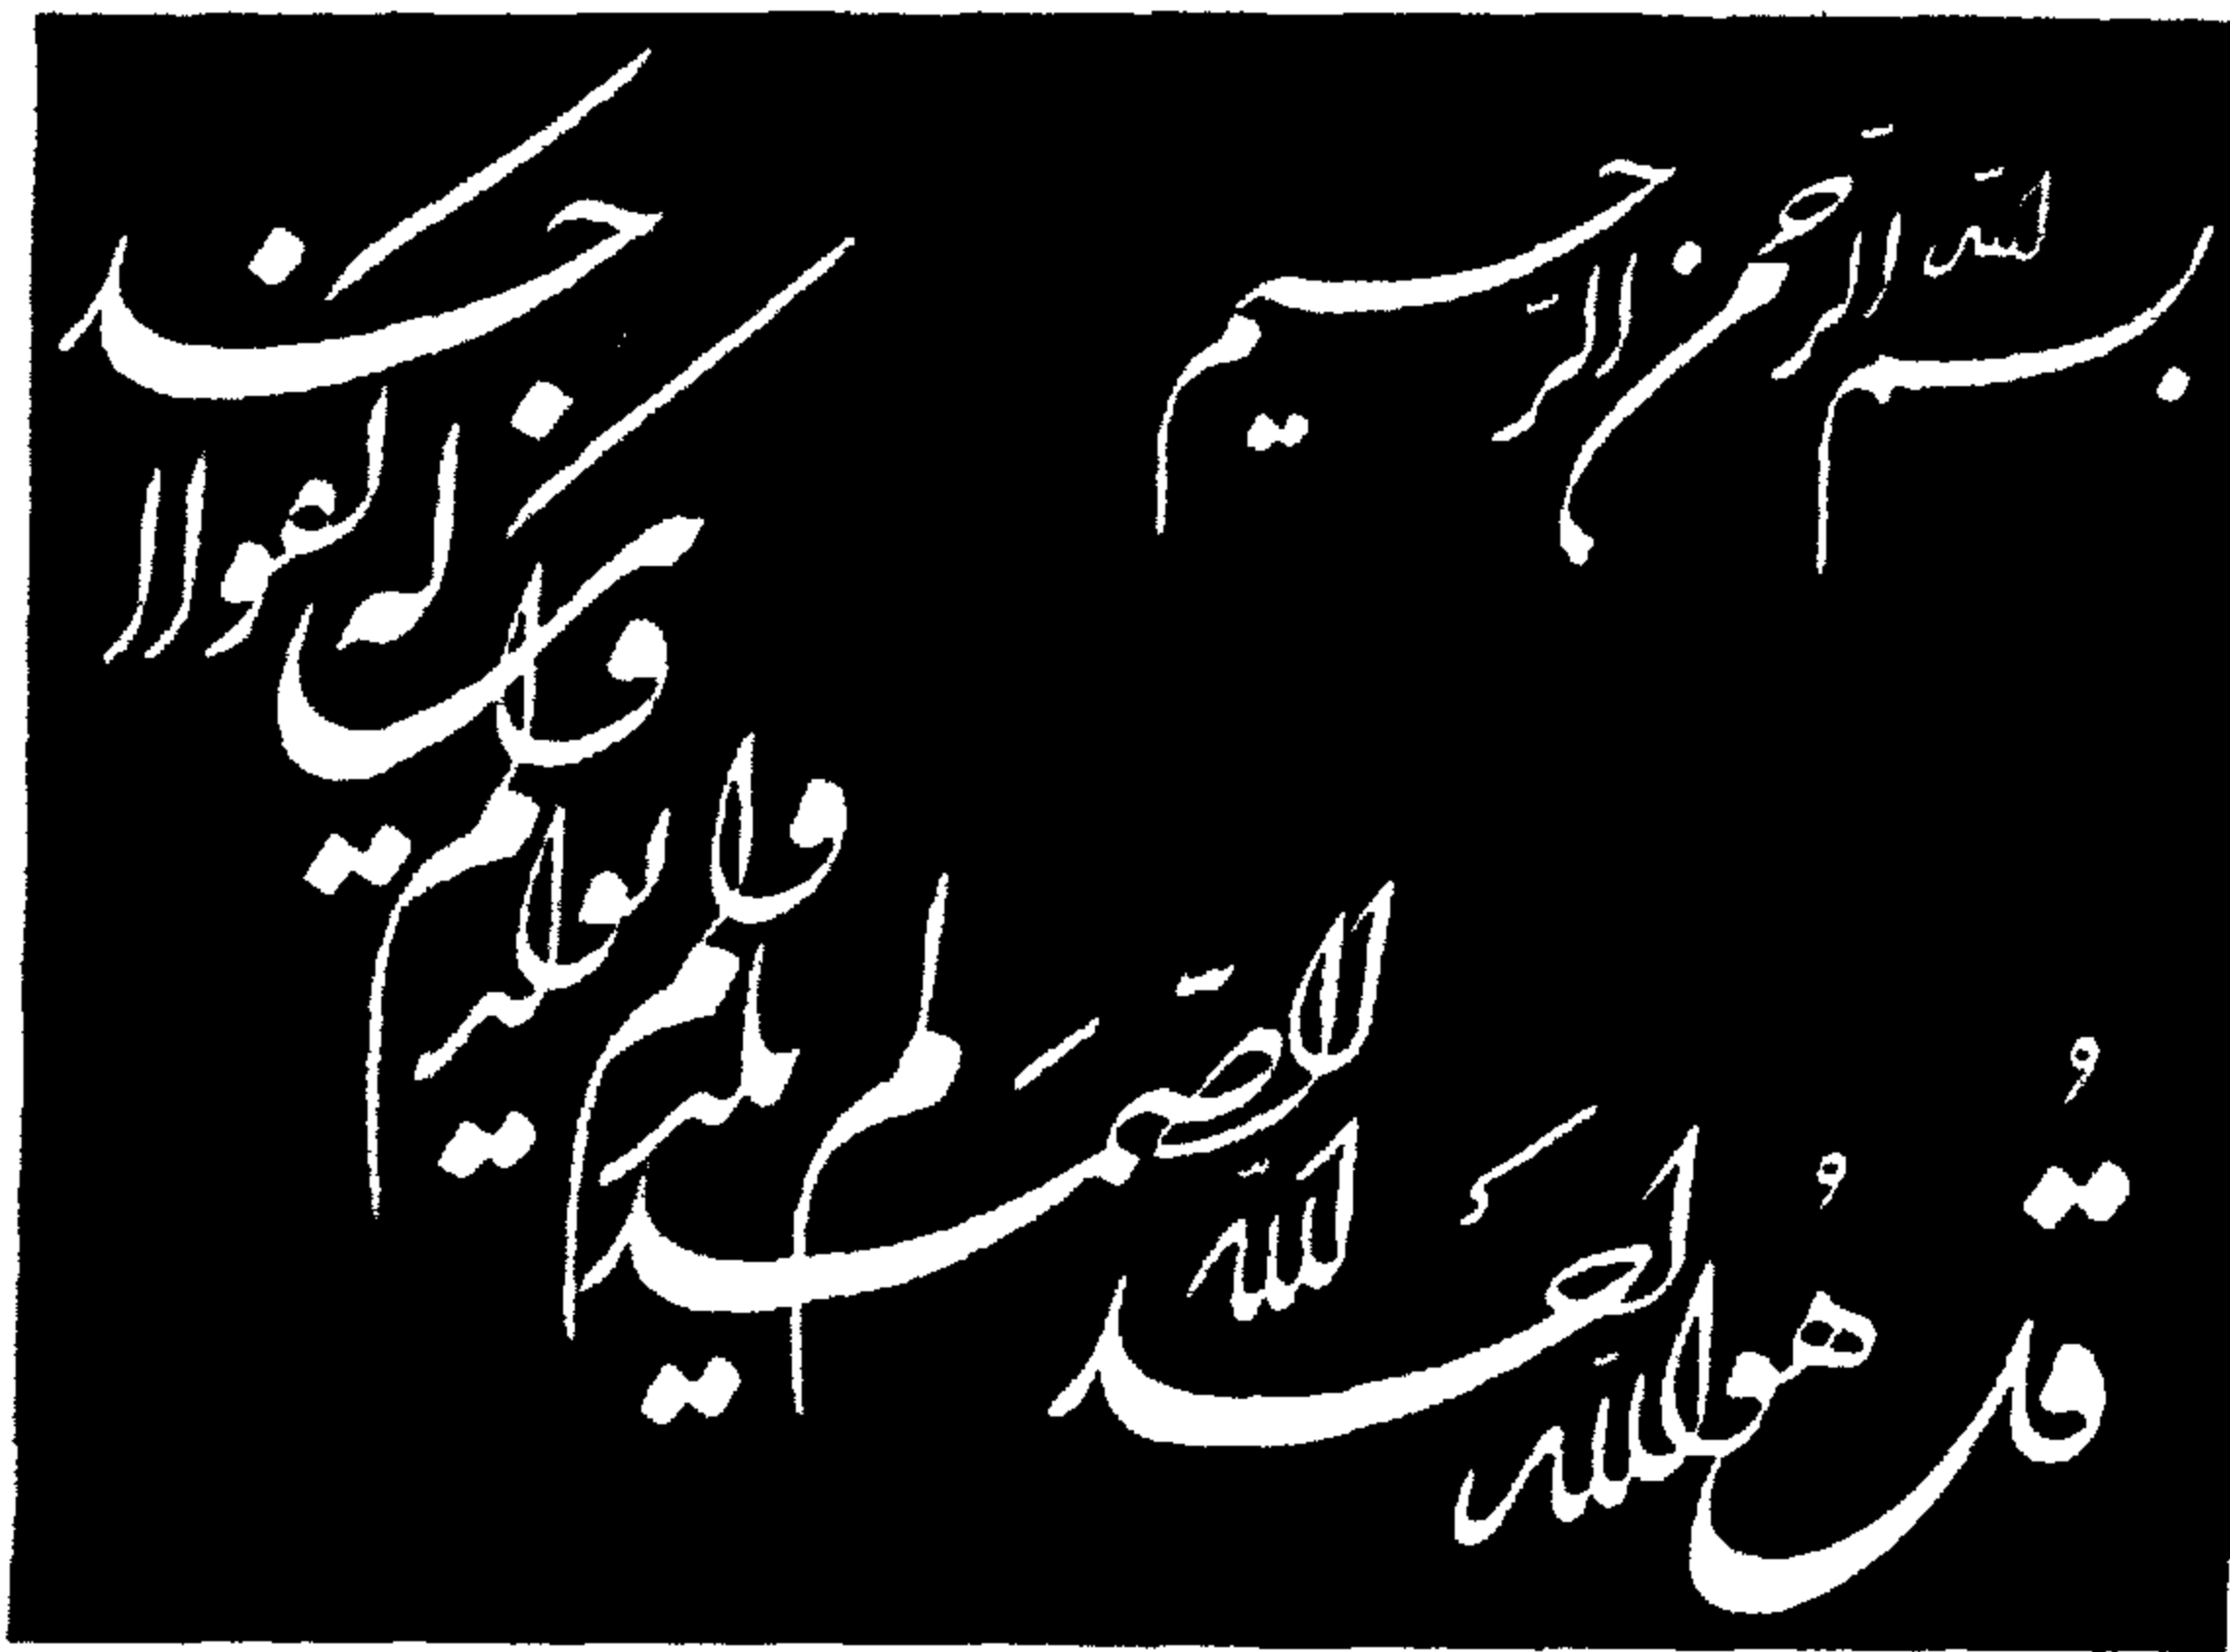 بسم الله الرحمن الرحيم
قل هو الله احد الله الصمد لم يلد و لم يولد و لم يكن له كفوا احد